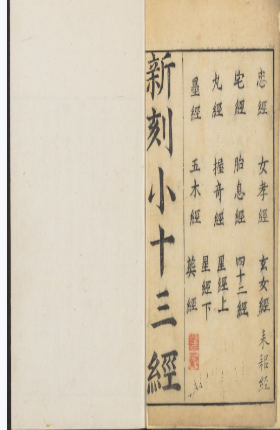 忠經　女孝經　玄女經　耒耜經
宅經　胎息經　四十二經
丸經　握奇經　星經上
星經下
墨經　五木經　葬經
新刻小十三經